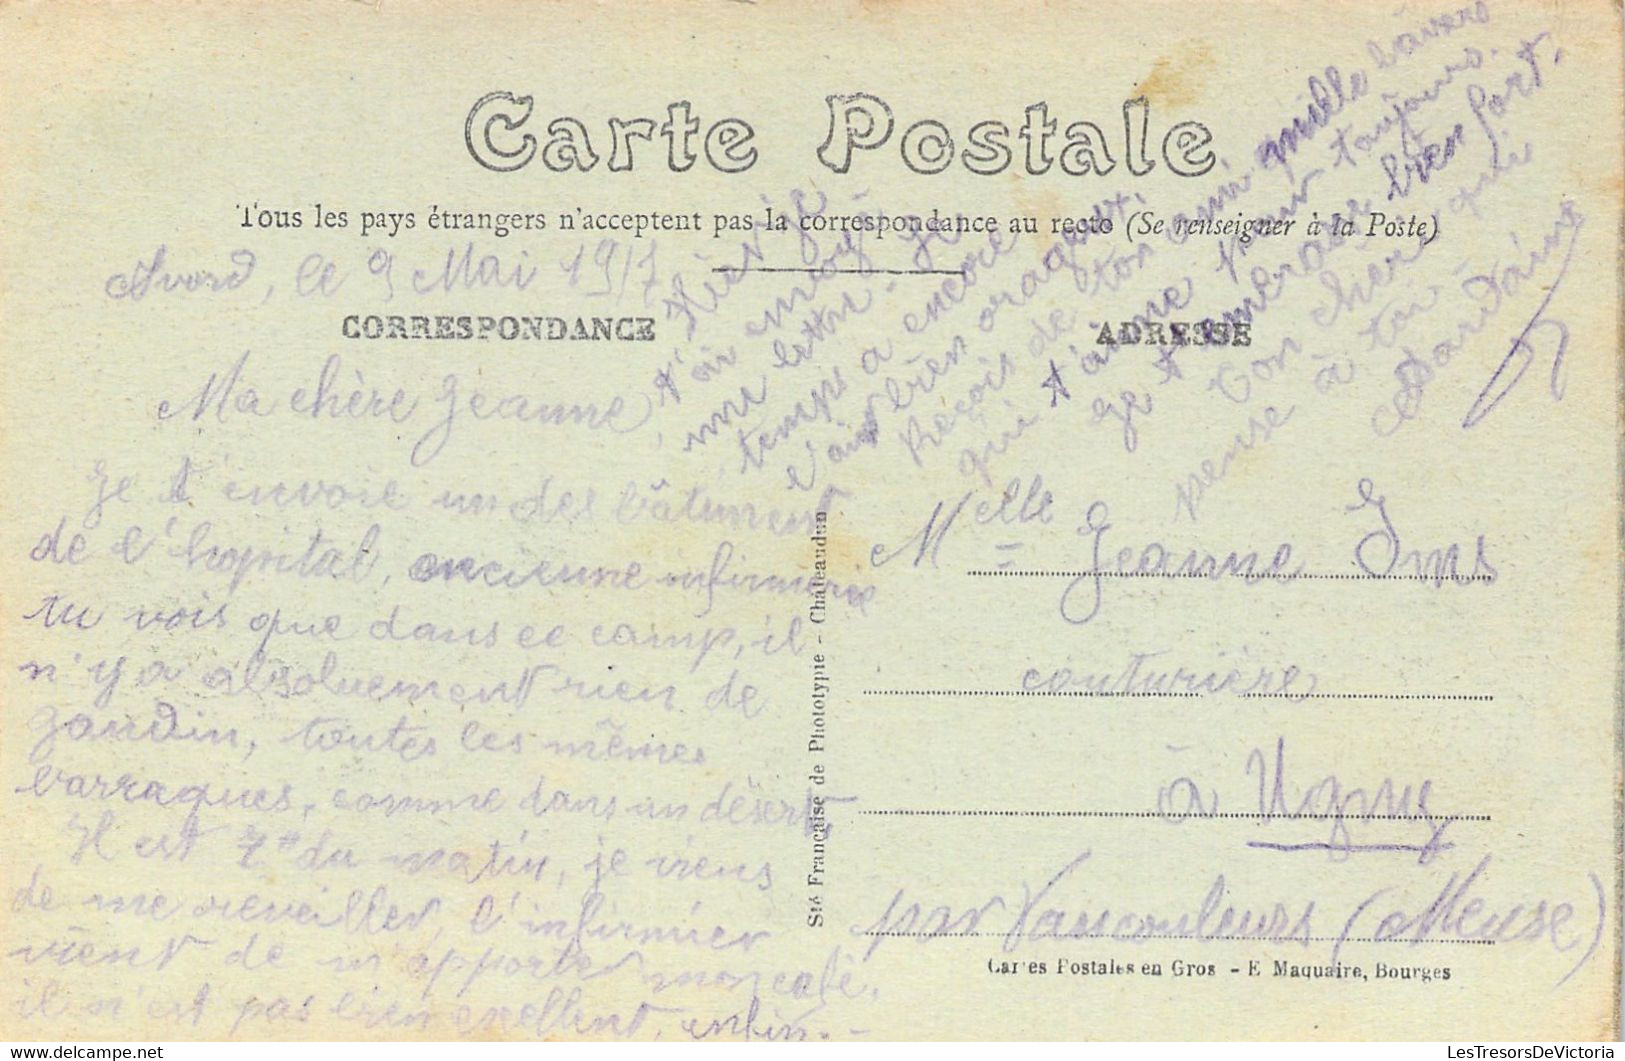 Carte Postale
Tous les pays étrangers n'acceptent pas la correspondance au recto (Se renseigner à la Poste)
CORRESPONDANCE
ADRESSE
Avord, le 9 Mai 1917
Ma chère Jeanne,
Je t'envoie un des bâtiment
de l'hopital, ancienne infirmerie
tu vois que dans ce camp, il
n'y a absoluement rien de
gaudin, toutes les mêmes
barraques, comme dans un désert,
Il est 7 h du matin, je viens
de me réveiller, l'infirmier
vient de m'apporter mon café,
il n'est pas bien exellent, enfin. -
Hier je
t'ai envoyé
une lettre. Le
temps a encore
l'air bien orageux.
Reçois de ton ami mille baisers
qui t'aime pour toujours.
Je t'embrasse bien fort.
Ton cheri qui
pense à toi -
Melle Jeanne Ims
couturière
à Ugny
par Vaucouleurs (Meuse)
Sté Française de Phototypie - Chateaudun
Cartes Postales en Gros - E Maquaire, Bourges
LesTresorsDeVictoria